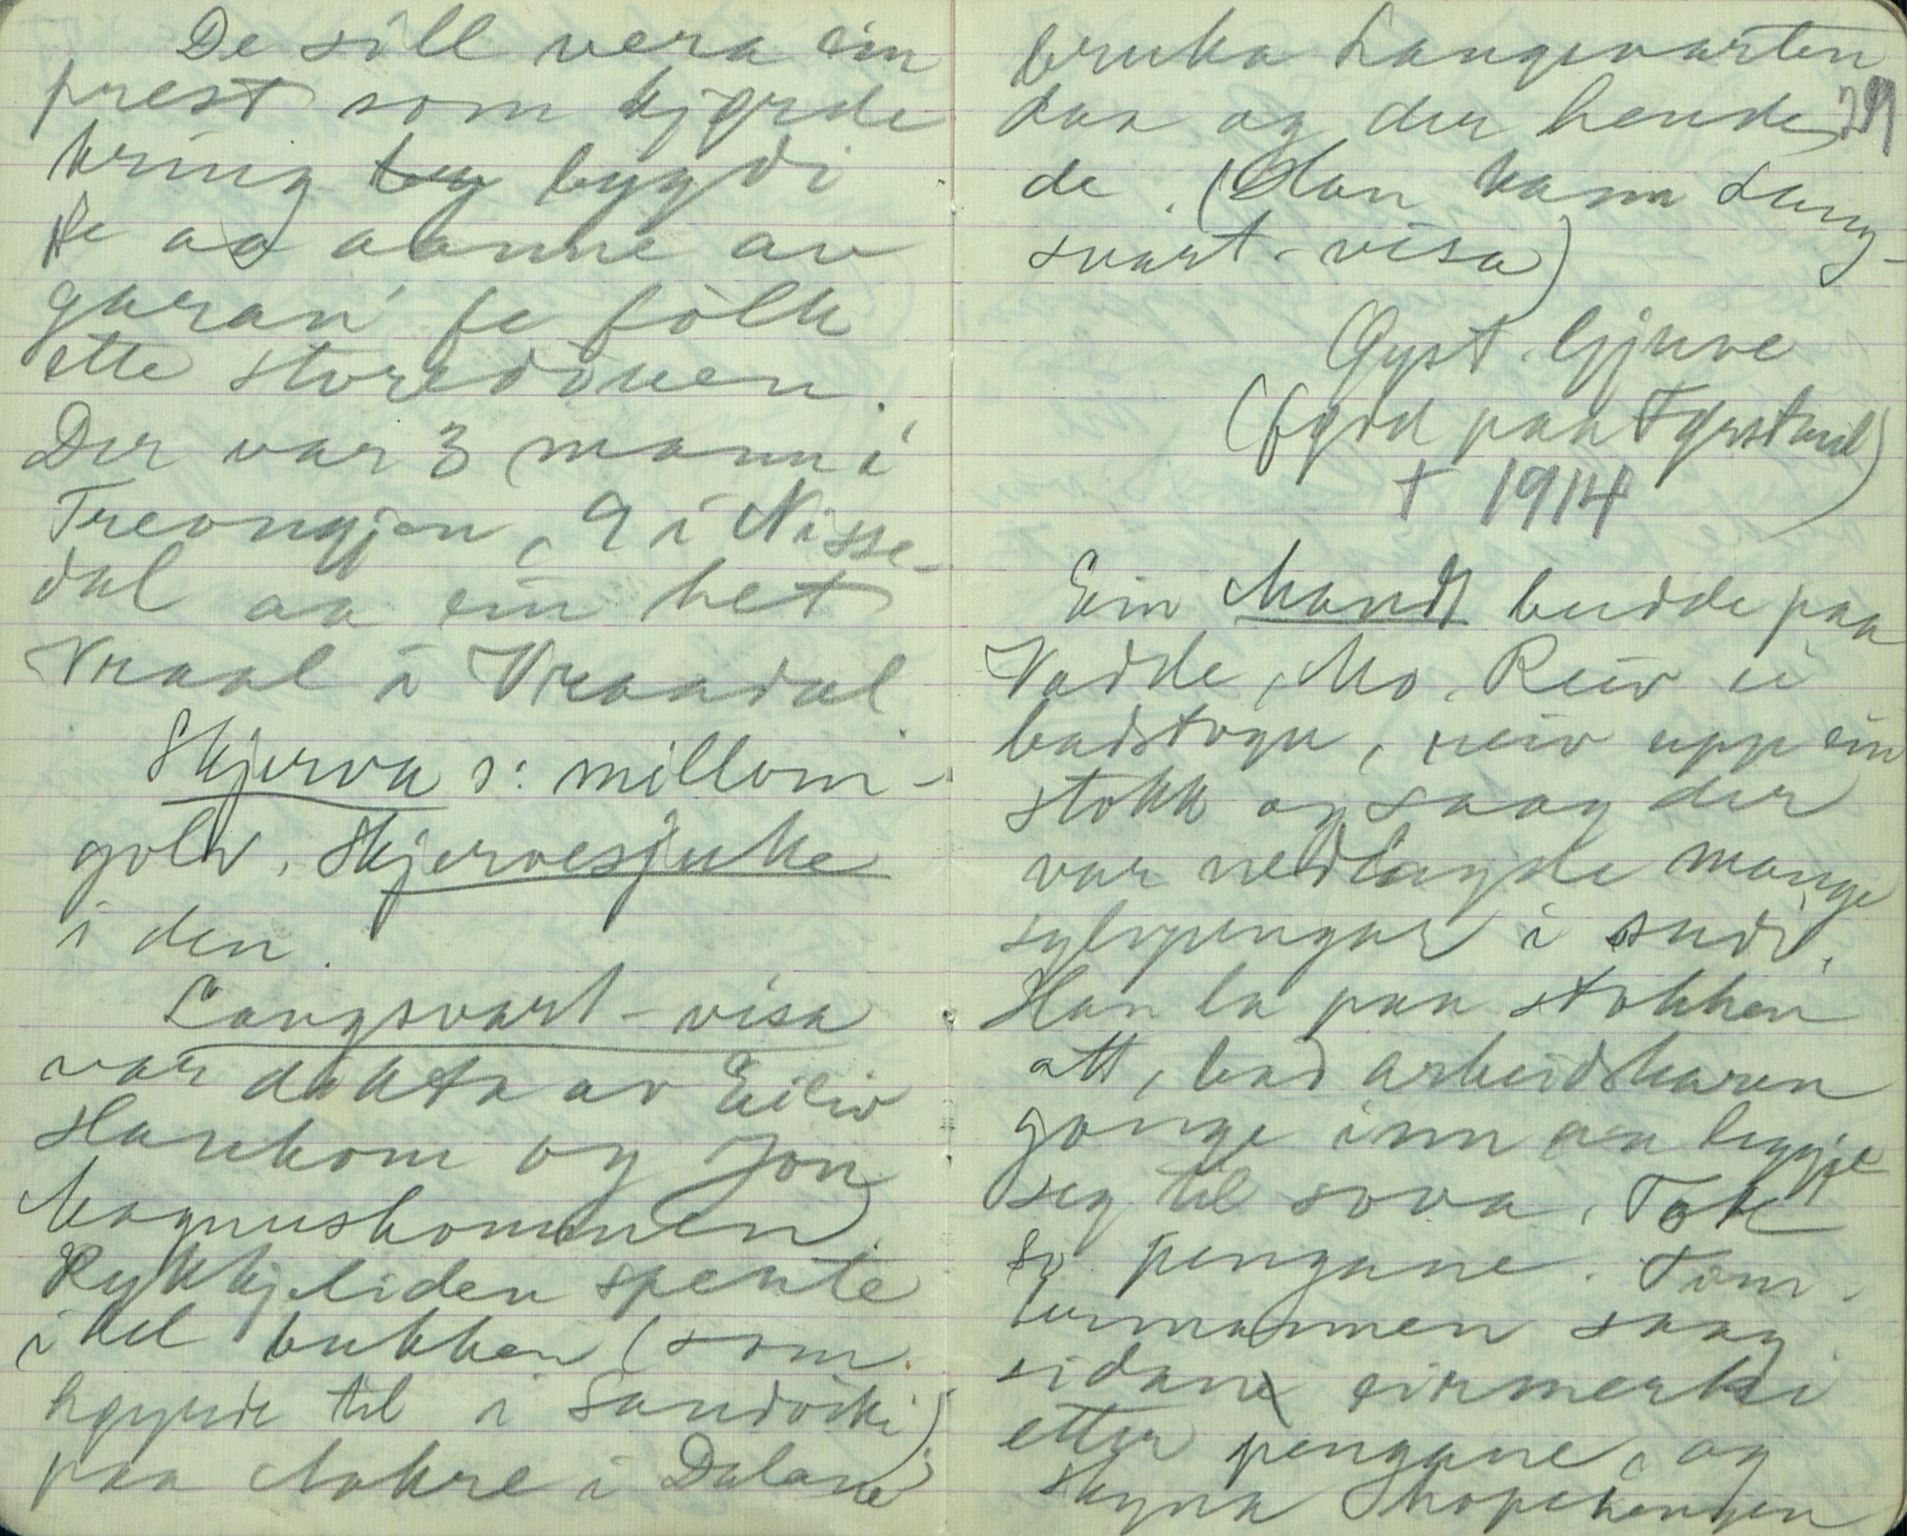 De sill vera ein
prest som kjørde
kring by bygdi
te aa aanne av
garan' fe fòlk
ette storedouen.
Der var 3 mann i
Treongjen, 9 i Nisse-
dal aa ein het
Vraal i Vraadal.
Skjerva ɔ: millom-
golv. Skjervesjuke
i den.
Langsvart-visa
var dikta av Eiliv
Harekom og Jon
Magnuskommen.
Rykkjeliden spente
i hel bukken (som
høyrde til i Sandviki)
paa Mokre i Dalane
bruka Langsvarten
daa og der hende
29
de. (Han kann Lang-
svart-visa)
Øyst. Gjuve
(fødd paa Førstveil)
† 1914
Ein Mandt budde paa
Vadde, Mo. Reiv ei
badstogu, reiv upp ein
stokk og saag der
var nedlagde mange
sylvpengar i sudi.
Han la paa stokken
att, bad arbeidskaren
gange inn aa leggje
seg til sova. Tok
so pengane. Tøm-
mermannen saag
sidan eirmerki
etter pengane, og
skyna Skopehongen